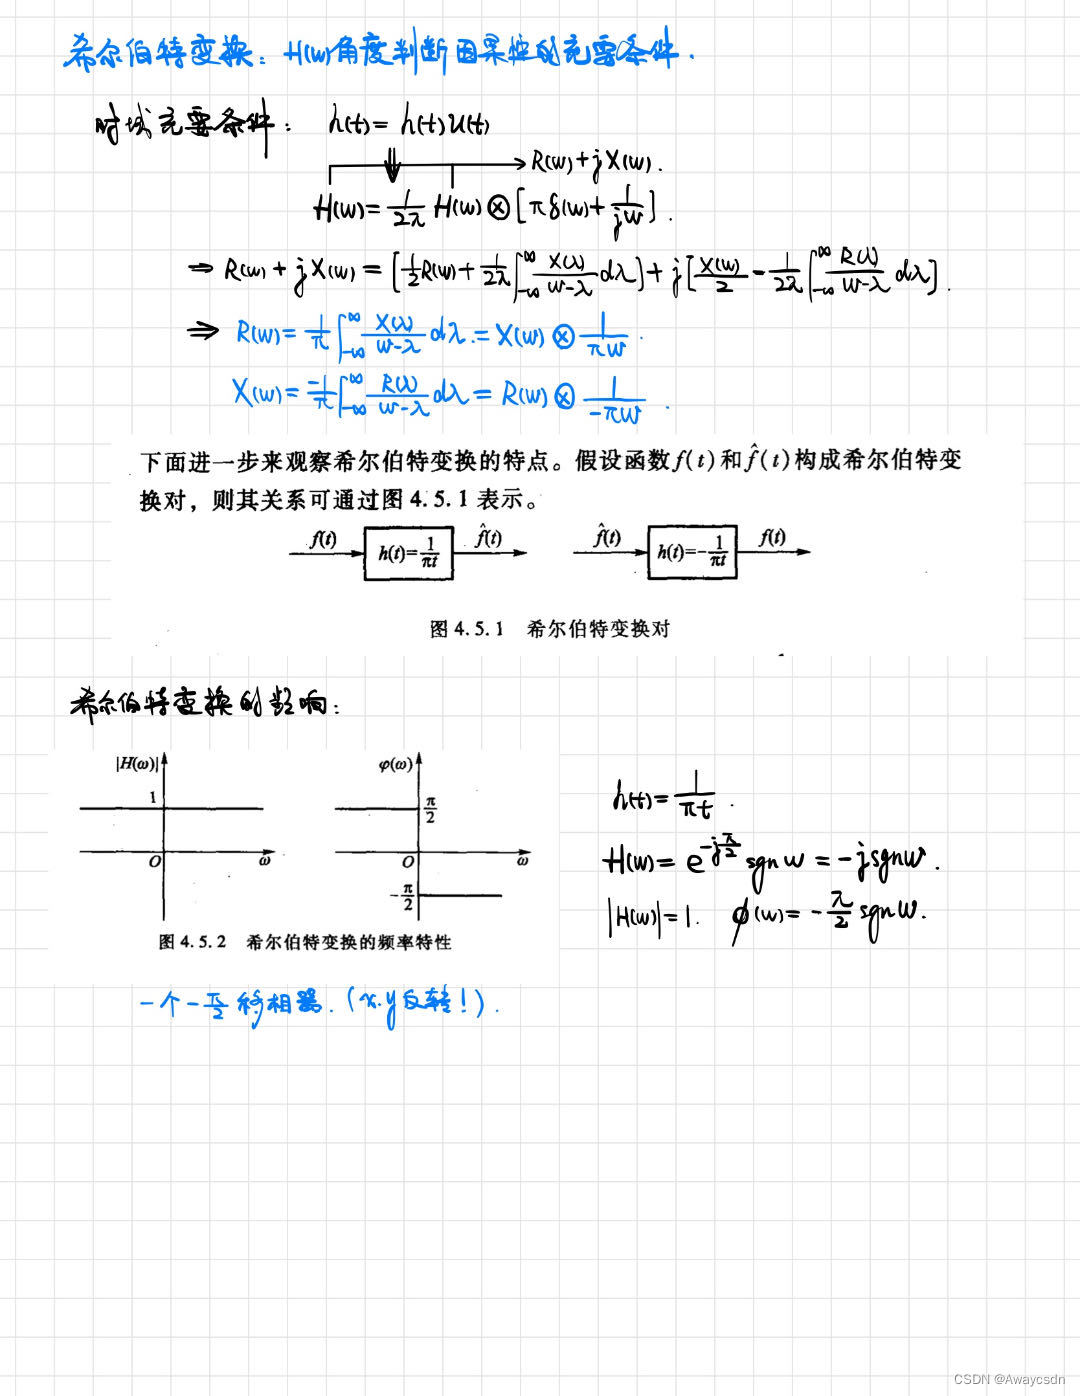 希尔伯特变换：H(w)角度判断因果性的充要条件.
时域充要条件： h(t)= h(t)u(t)
R(w)+jX(w).
H(w)= 1/2π H(w)⊗[πδ(w)+1/jw].
⇒ R(w)+jX(w)=[1/2 R(w)+1/2π ∫_{-∞}^{∞} X(λ)/(w-λ) dλ]+j[X(w)/2 - 1/2π ∫_{-∞}^{∞} R(λ)/(w-λ) dλ].
⇒ R(w)= 1/π ∫_{-∞}^{∞} X(λ)/(w-λ) dλ = X(w)⊗ 1/πw.
X(w)= -1/π ∫_{-∞}^{∞} R(λ)/(w-λ) dλ = R(w)⊗ 1/-πw.
下面进一步来观察希尔伯特变换的特点。假设函数f(t)和f̂(t)构成希尔伯特变
换对，则其关系可通过图4.5.1表示。
f(t) h(t)=1/πt f̂(t) f̂(t) h(t)=-1/πt f(t)
图4.5.1 希尔伯特变换对
希尔伯特变换的影响：
|H(ω)| 1 O ω
φ(ω) π/2 O ω -π/2
图4.5.2 希尔伯特变换的频率特性
h(t)= 1/πt.
H(w)= e^{-jπ/2 sgnw} = -jsgnw.
|H(w)|=1. φ(w)= -π/2 sgnw.
一个-π/2移相器.(x.y反转!).
CSDN @Awaycsdn